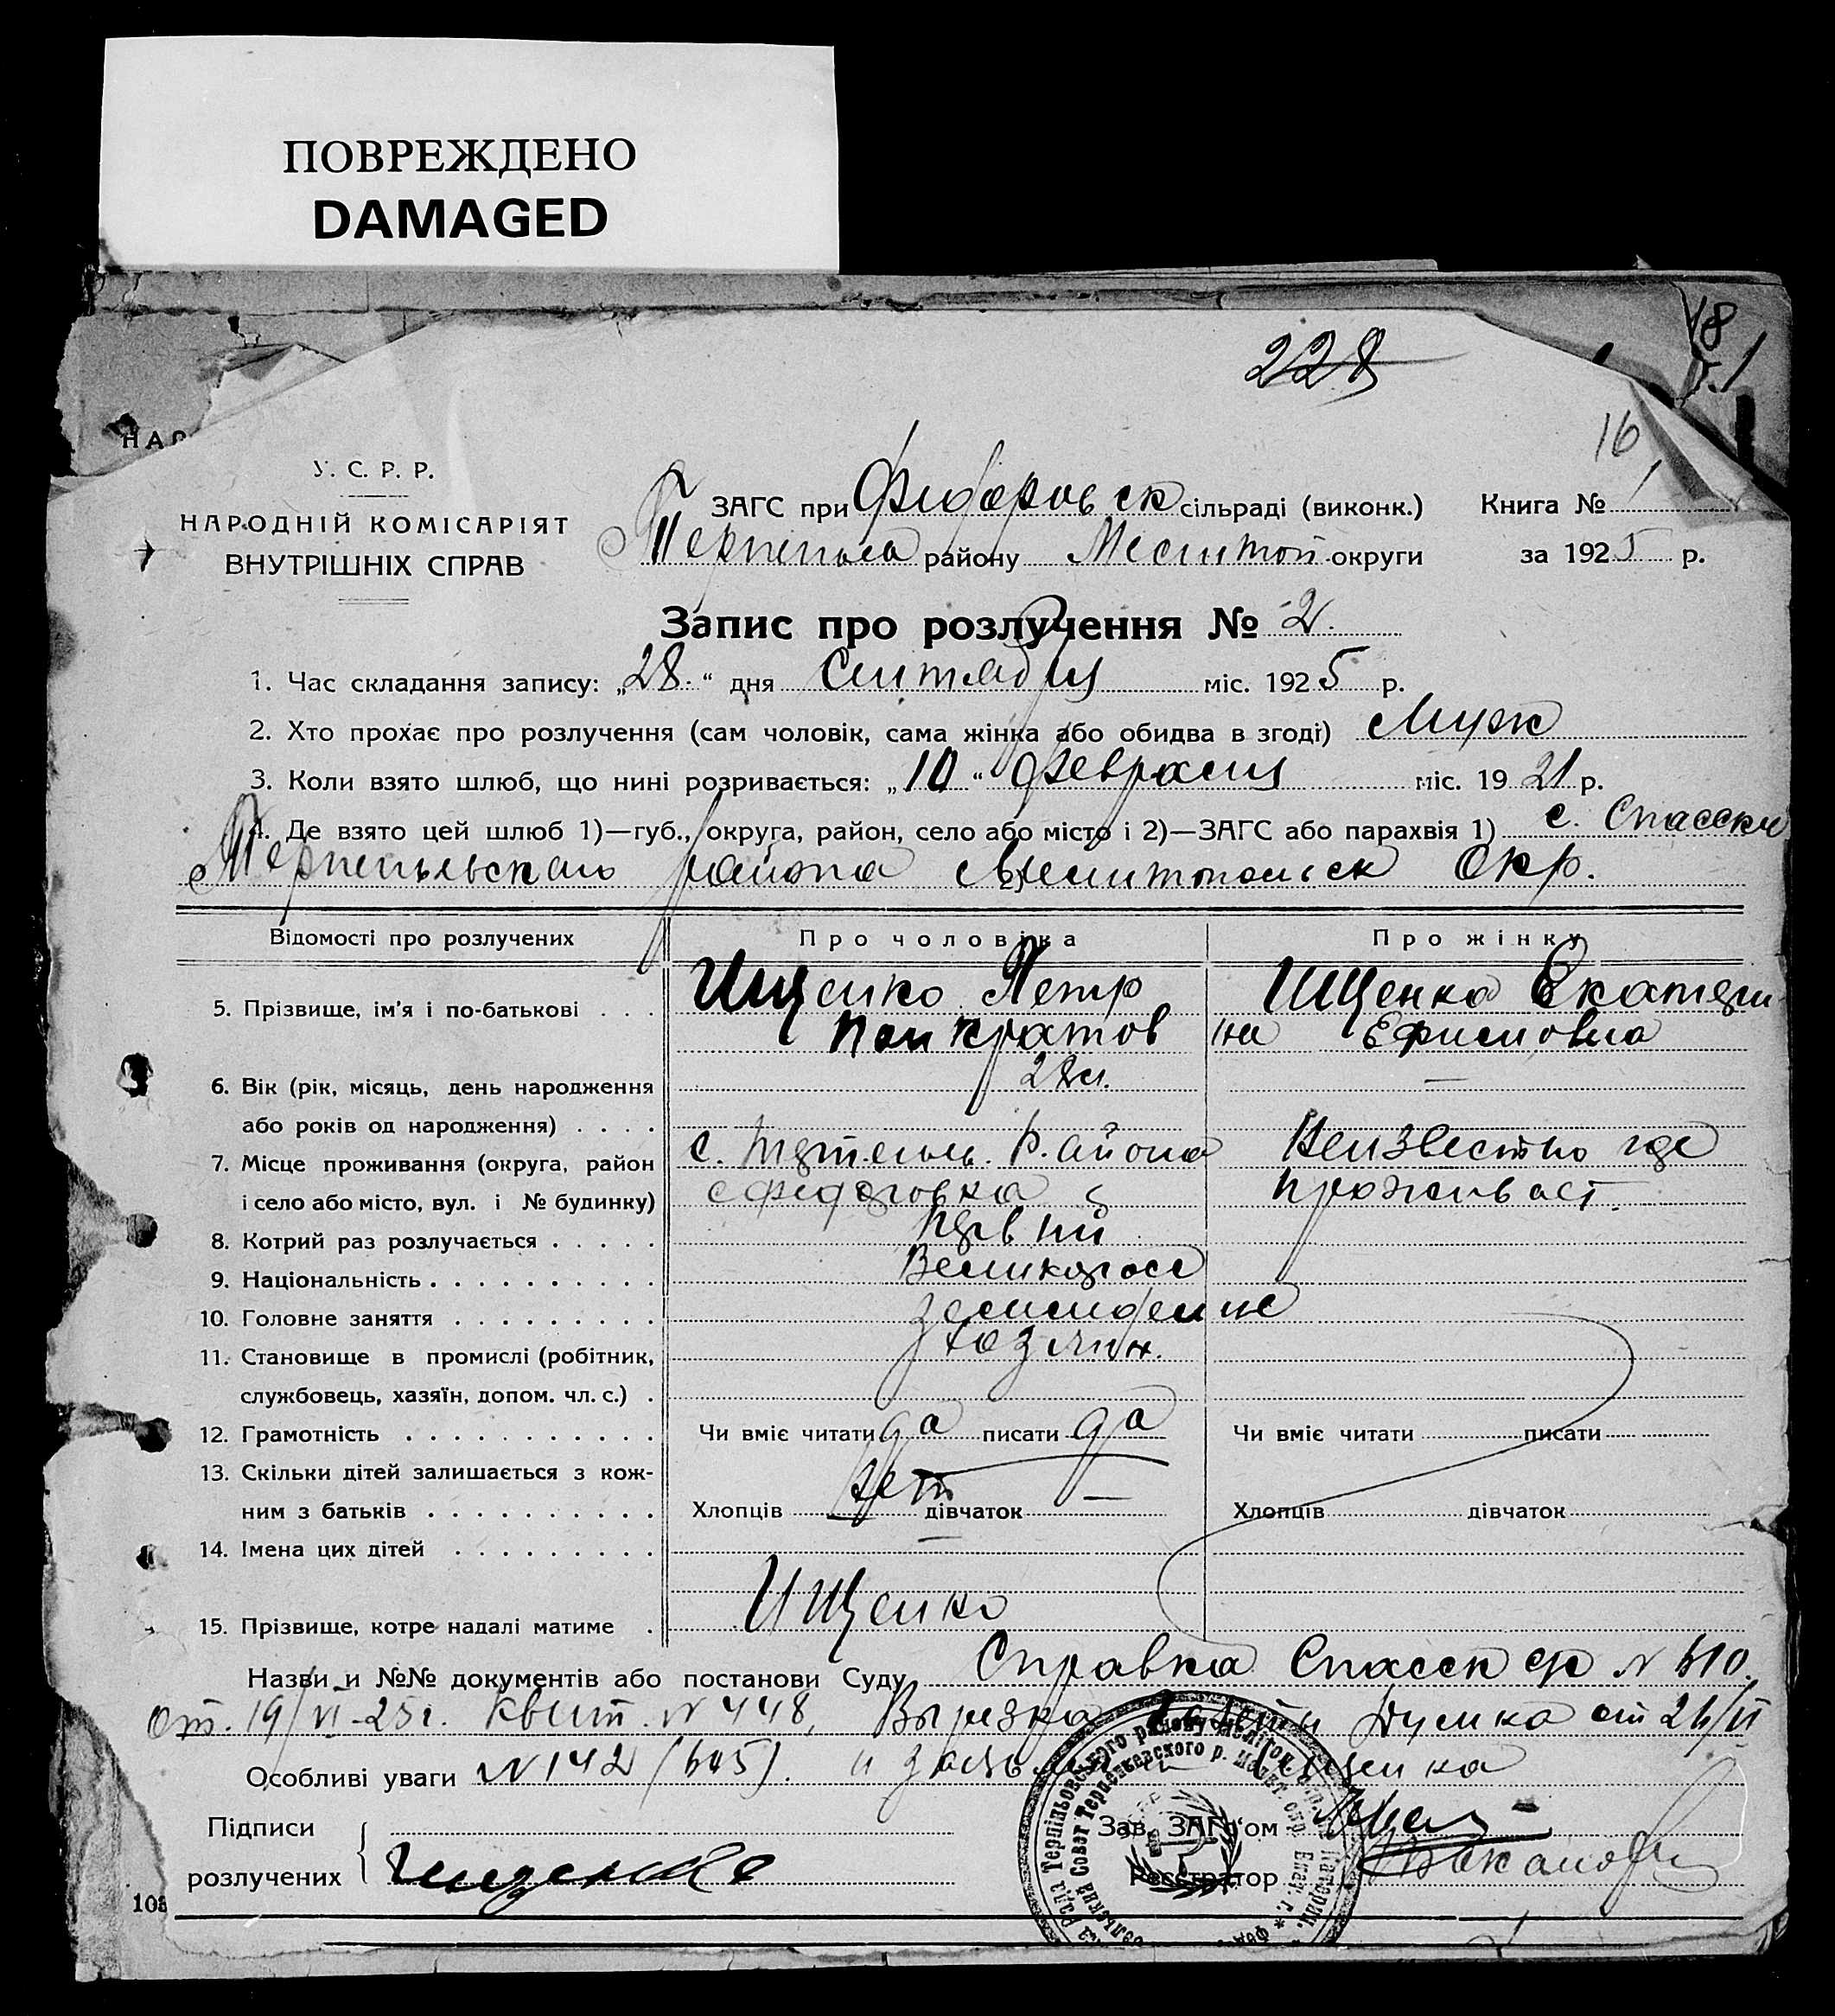 ПОВРЕЖДЕНО
DAMAGED
228
48
16
НАР
У. С. Р. Р.
НАРОДНІЙ КОМІСАРІЯТ
ВНУТРІШНІХ СПРАВ
ЗАГС при Федоровск сільраді (виконк.) Книга № 1
Терпельв району Мелитоп округи за 1925 р.
Запис про розлучення № 2.
1. Час складання запису: „28.“ дня Сентября міс. 1925 р.
2. Хто прохає про розлучення (сам чоловік, сама жінка або обидва в згоді) Муж
3. Коли взято шлюб, що нині розривається: „10“ февраля міс. 1921 р.
4. Де взято цей шлюб 1)—губ., округа, район, село або місто і 2)—ЗАГС або парахвія 1) с. Спасское
Терпельевского района 2) Мелитопольск Окр.
Відомості про розлучених Про чоловіка Про жінку
5. Прізвище, ім'я і по-батькові . . . Ищенко Петр ИЩенко Екатери-
Панкратов на Ефимовна
6. Вік (рік, місяць, день народження 28 л. —
або років од народження) . . . .
7. Місце проживання (округа, район с. Района Неизвестно где
і село або місто, вул. і № будинку) с Федоровка проживает
8. Котрий раз розлучається . . . . . первый
9. Національність . . . . . . . . . . Великоросс
10. Головне заняття . . . . . . . . . земледелие
11. Становище в промислі (робітник, хозяин.
службовець, хазяїн, допом. чл. с.) .
12. Грамотність . . . . . . . . . . . Чи вміє читати да писати да Чи вміє читати писати
13. Скільки дітей залишається з кож-
ним з батьків . . . . . . . . . . Хлопців нет дівчаток — Хлопців дівчаток
14. Імена цих дітей . . . . . . . . . —
15. Прізвище, котре надалі матиме . ИЩенко
Назви и №№ документів або постанови Суду Справка Спасск с/с N 610.
от. 19/VI-25 г. Квит. N 448, Вырезка газеты Думка от 26/VI
Особливі уваги N 142 (605). и Ищенка
Підписи Зав. ЗАГс'ом
розлучених Ищенко Реєстратор
108